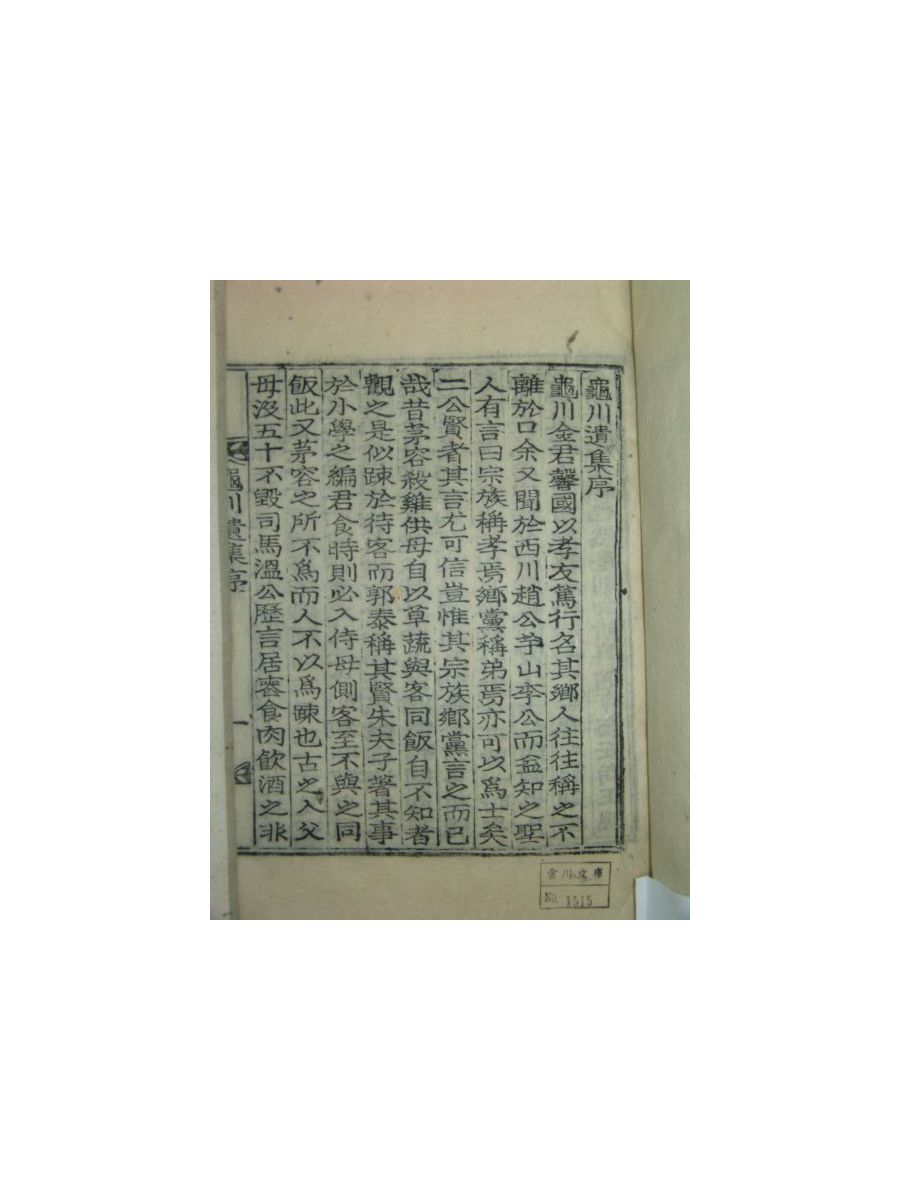 龜川遺集序
龜川金君馨國以孝友篤行名其鄕人往往稱之不
離於口余又聞於西川趙公芧山李公而益知之聖
人有言曰宗族稱孝焉鄕黨稱弟焉亦可以爲士矣
二公賢者其言尤可信豈惟其宗族鄕黨言之而已
哉昔茅容殺雞供母自以草蔬與客同飯自不知者
觀之是似踈於待客而郭泰稱其賢朱夫子著其事
於小學之編君食時則必入侍母側客至不與之同
飯此又茅容之所不爲而人不以爲踈也古之人父
母沒五十不毁司馬溫公歷言居喪食肉飮酒之非
龜川遺集序
一
雲川文庫
No. 1515